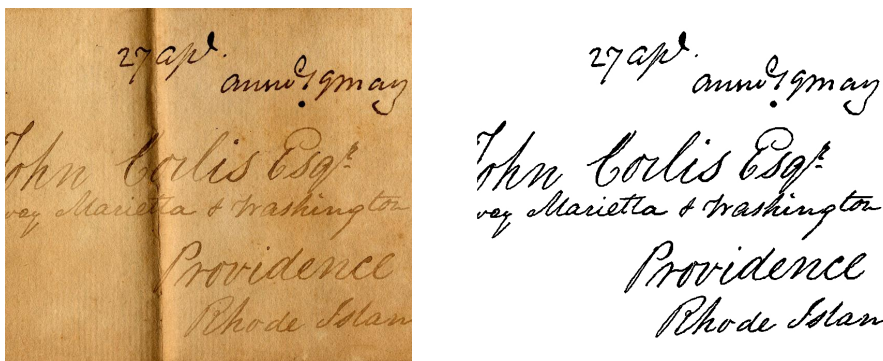 27 apl.
19 may
John Corlis Esqr.
way Marietta & Washington
Providence
Rhode Islan
27 apl.
19 may
John Corlis Esqr.
way Marietta & Washington
Providence
Rhode Islan